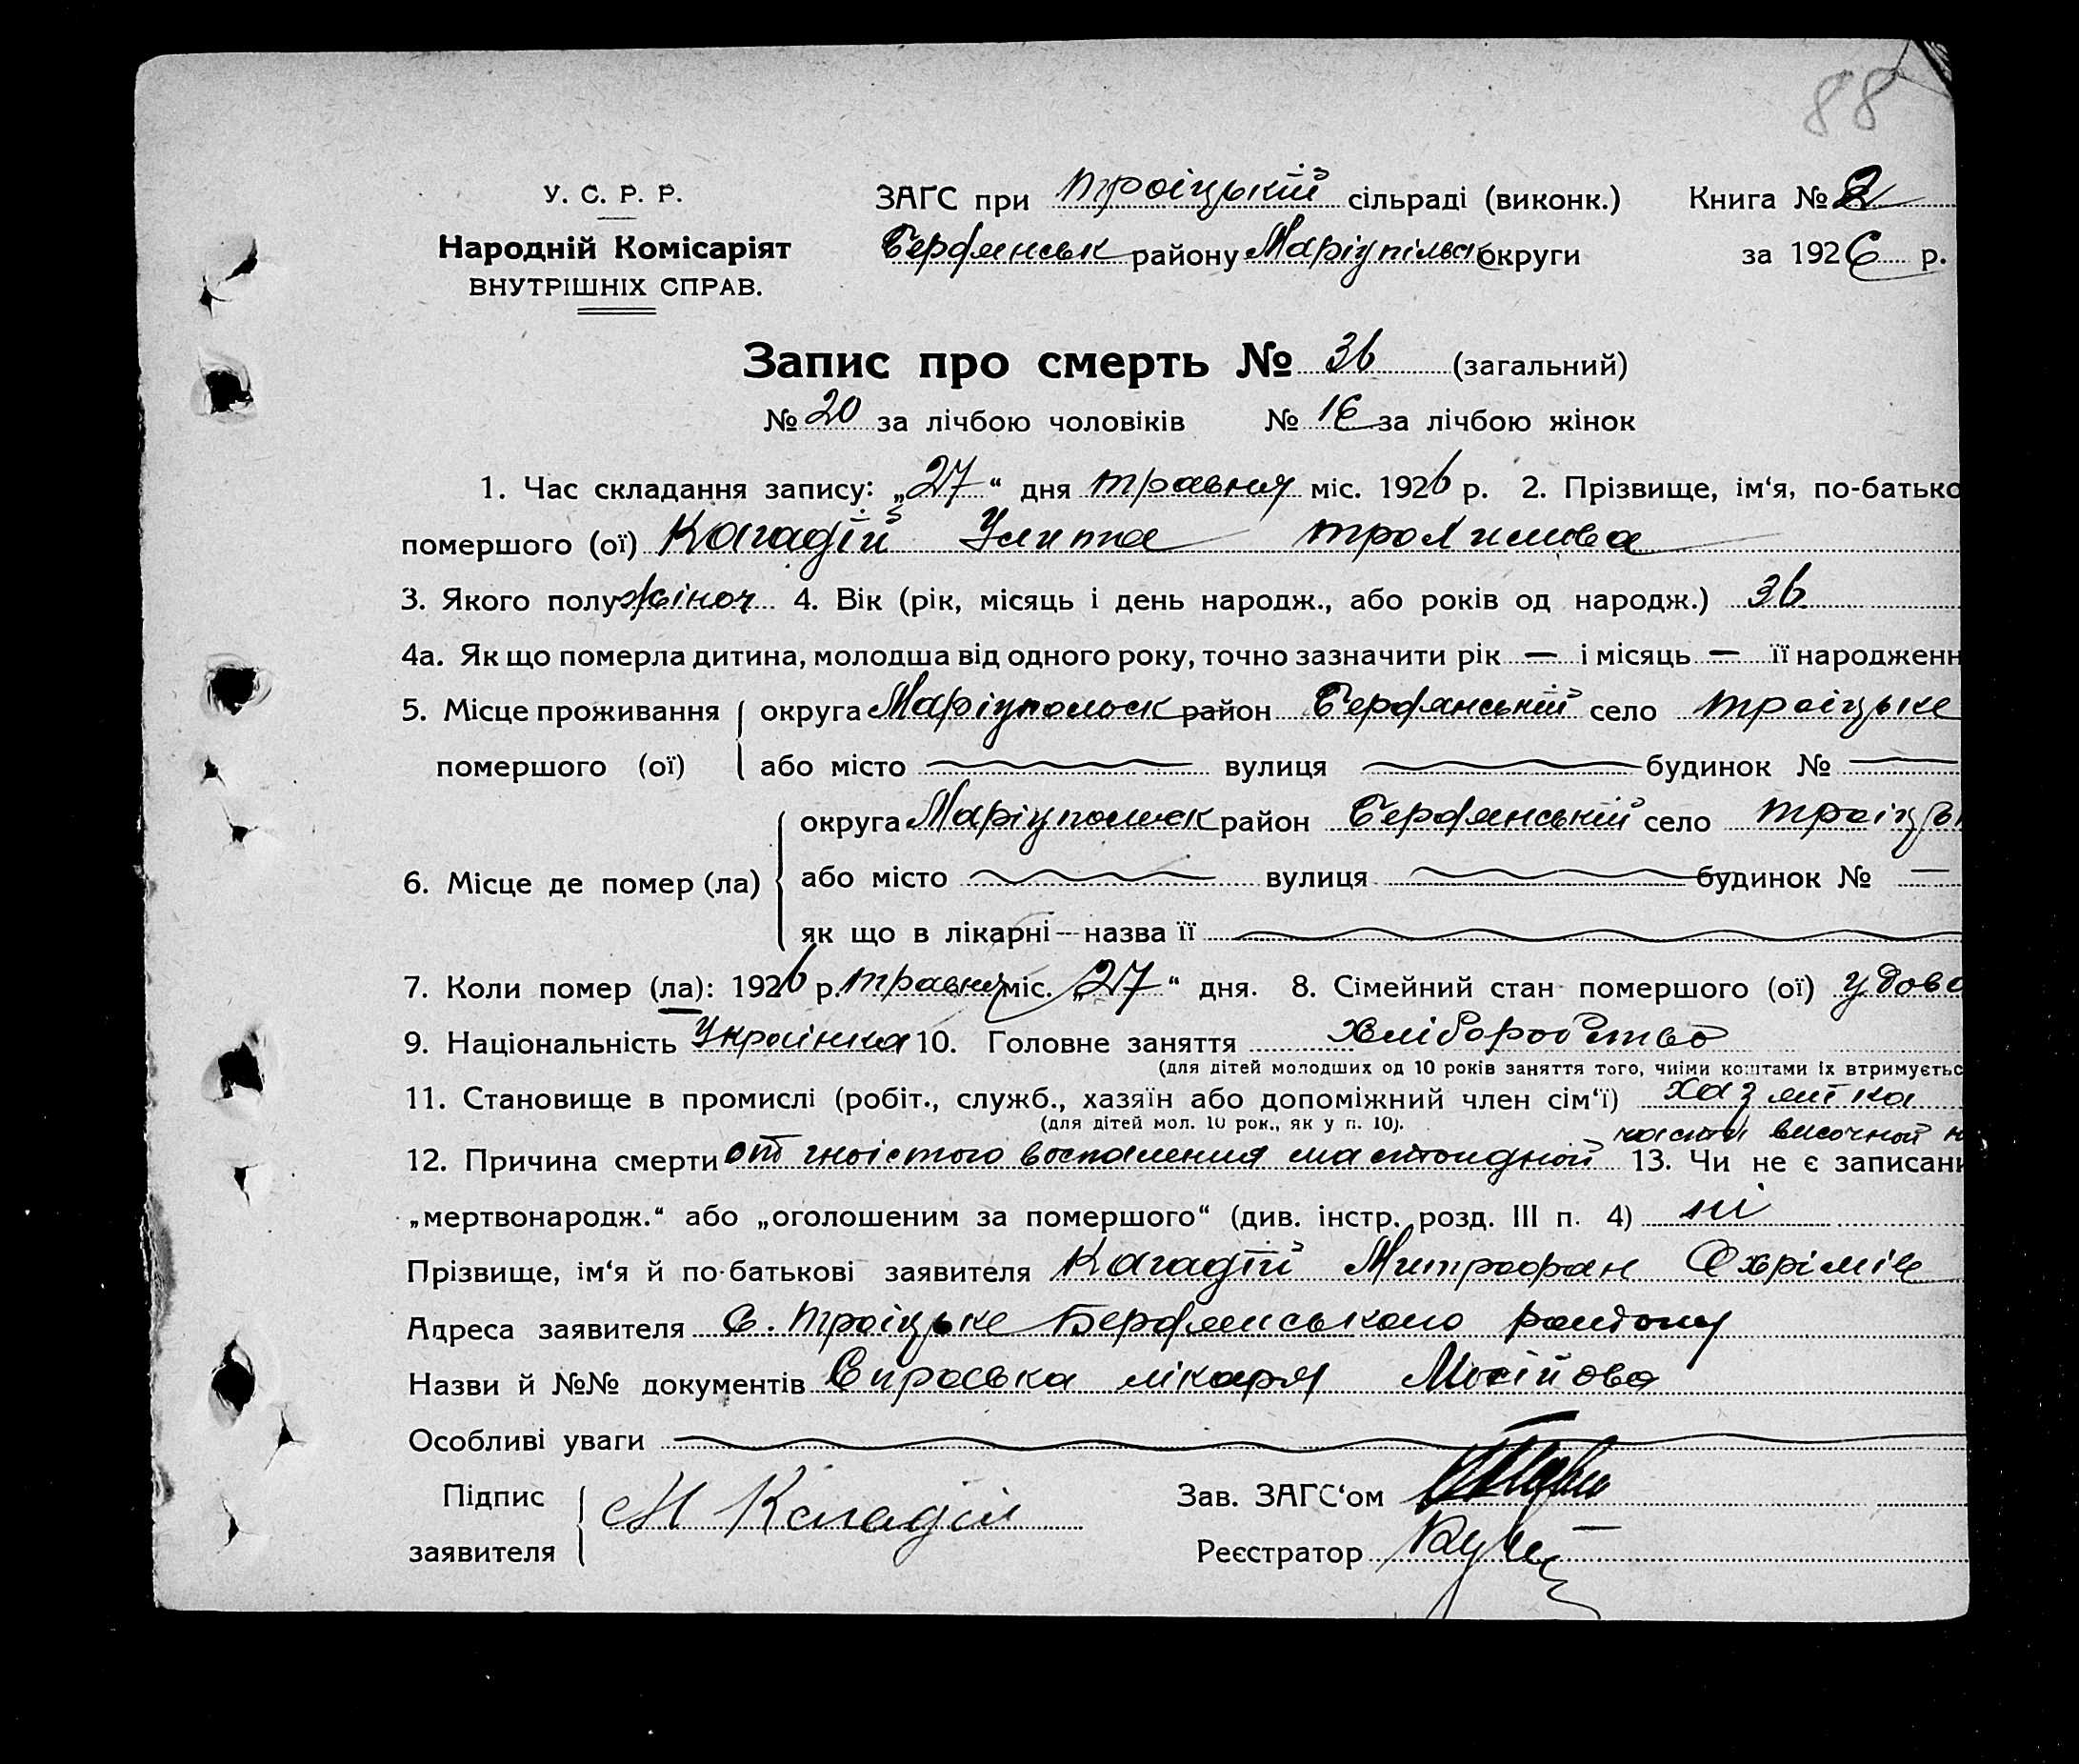 88
У. С. Р. Р.
Народній Комісаріят
ВНУТРІШНІХ СПРАВ.
ЗАГС при троіцькій сільраді (виконк.)
Бердянськ району Маріупільськ округи
Книга № 2
за 1926 р.
Запис про смерть № 36 (загальний)
№ 20 за лічбою чоловіків № 16 за лічбою жінок
1. Час складання запису: „27“ дня травня міс. 1926 р. 2. Прізвище, ім‘я, по-батько
помершого (ої) Кагадій Улита
3. Якого полу жіноч 4. Вік (рік, місяць і день народж., або років од народж.) 36
4а. Як що померла дитина, молодша від одного року, точно зазначити рік — і місяць — її народженн
5. Місце проживання округа Маріупольск район Бердянський село троіцьке
помершого (ої) або місто вулиця будинок № —
6. Місце де помер (ла) округа Маріупольск район Бердянський село троіць
або місто вулиця будинок № —
як що в лікарні — назва її
7. Коли помер (ла): 1926 р. травня міс. „27“ дня. 8. Сімейний стан помершого (ої) удова
9. Національність Украінка 10. Головне заняття хліборобство
(для дітей молодших од 10 років заняття того, чиїми коштами їх втримуєтьс
11. Становище в промислі (робіт., служб., хазяїн або допоміжний член сім‘ї) хазяйка
(для дітей мол. 10 рок., як у п. 10).
части височной
12. Причина смерти от гноістого воспаления мастоидной 13. Чи не є записани
„мертвонародж.“ або „оголошеним за помершого“ (див. інстр. розд. III п. 4) ні
Прізвище, ім‘я й по-батькові заявителя Кагадій Митрофан Охрімів
Адреса заявителя С. троіцьке Бердянського району
Назви й №№ документів лікаря
Особливі уваги
Підпис
заявителя М Кагадій
Зав. ЗАГС‘ом
Реєстратор